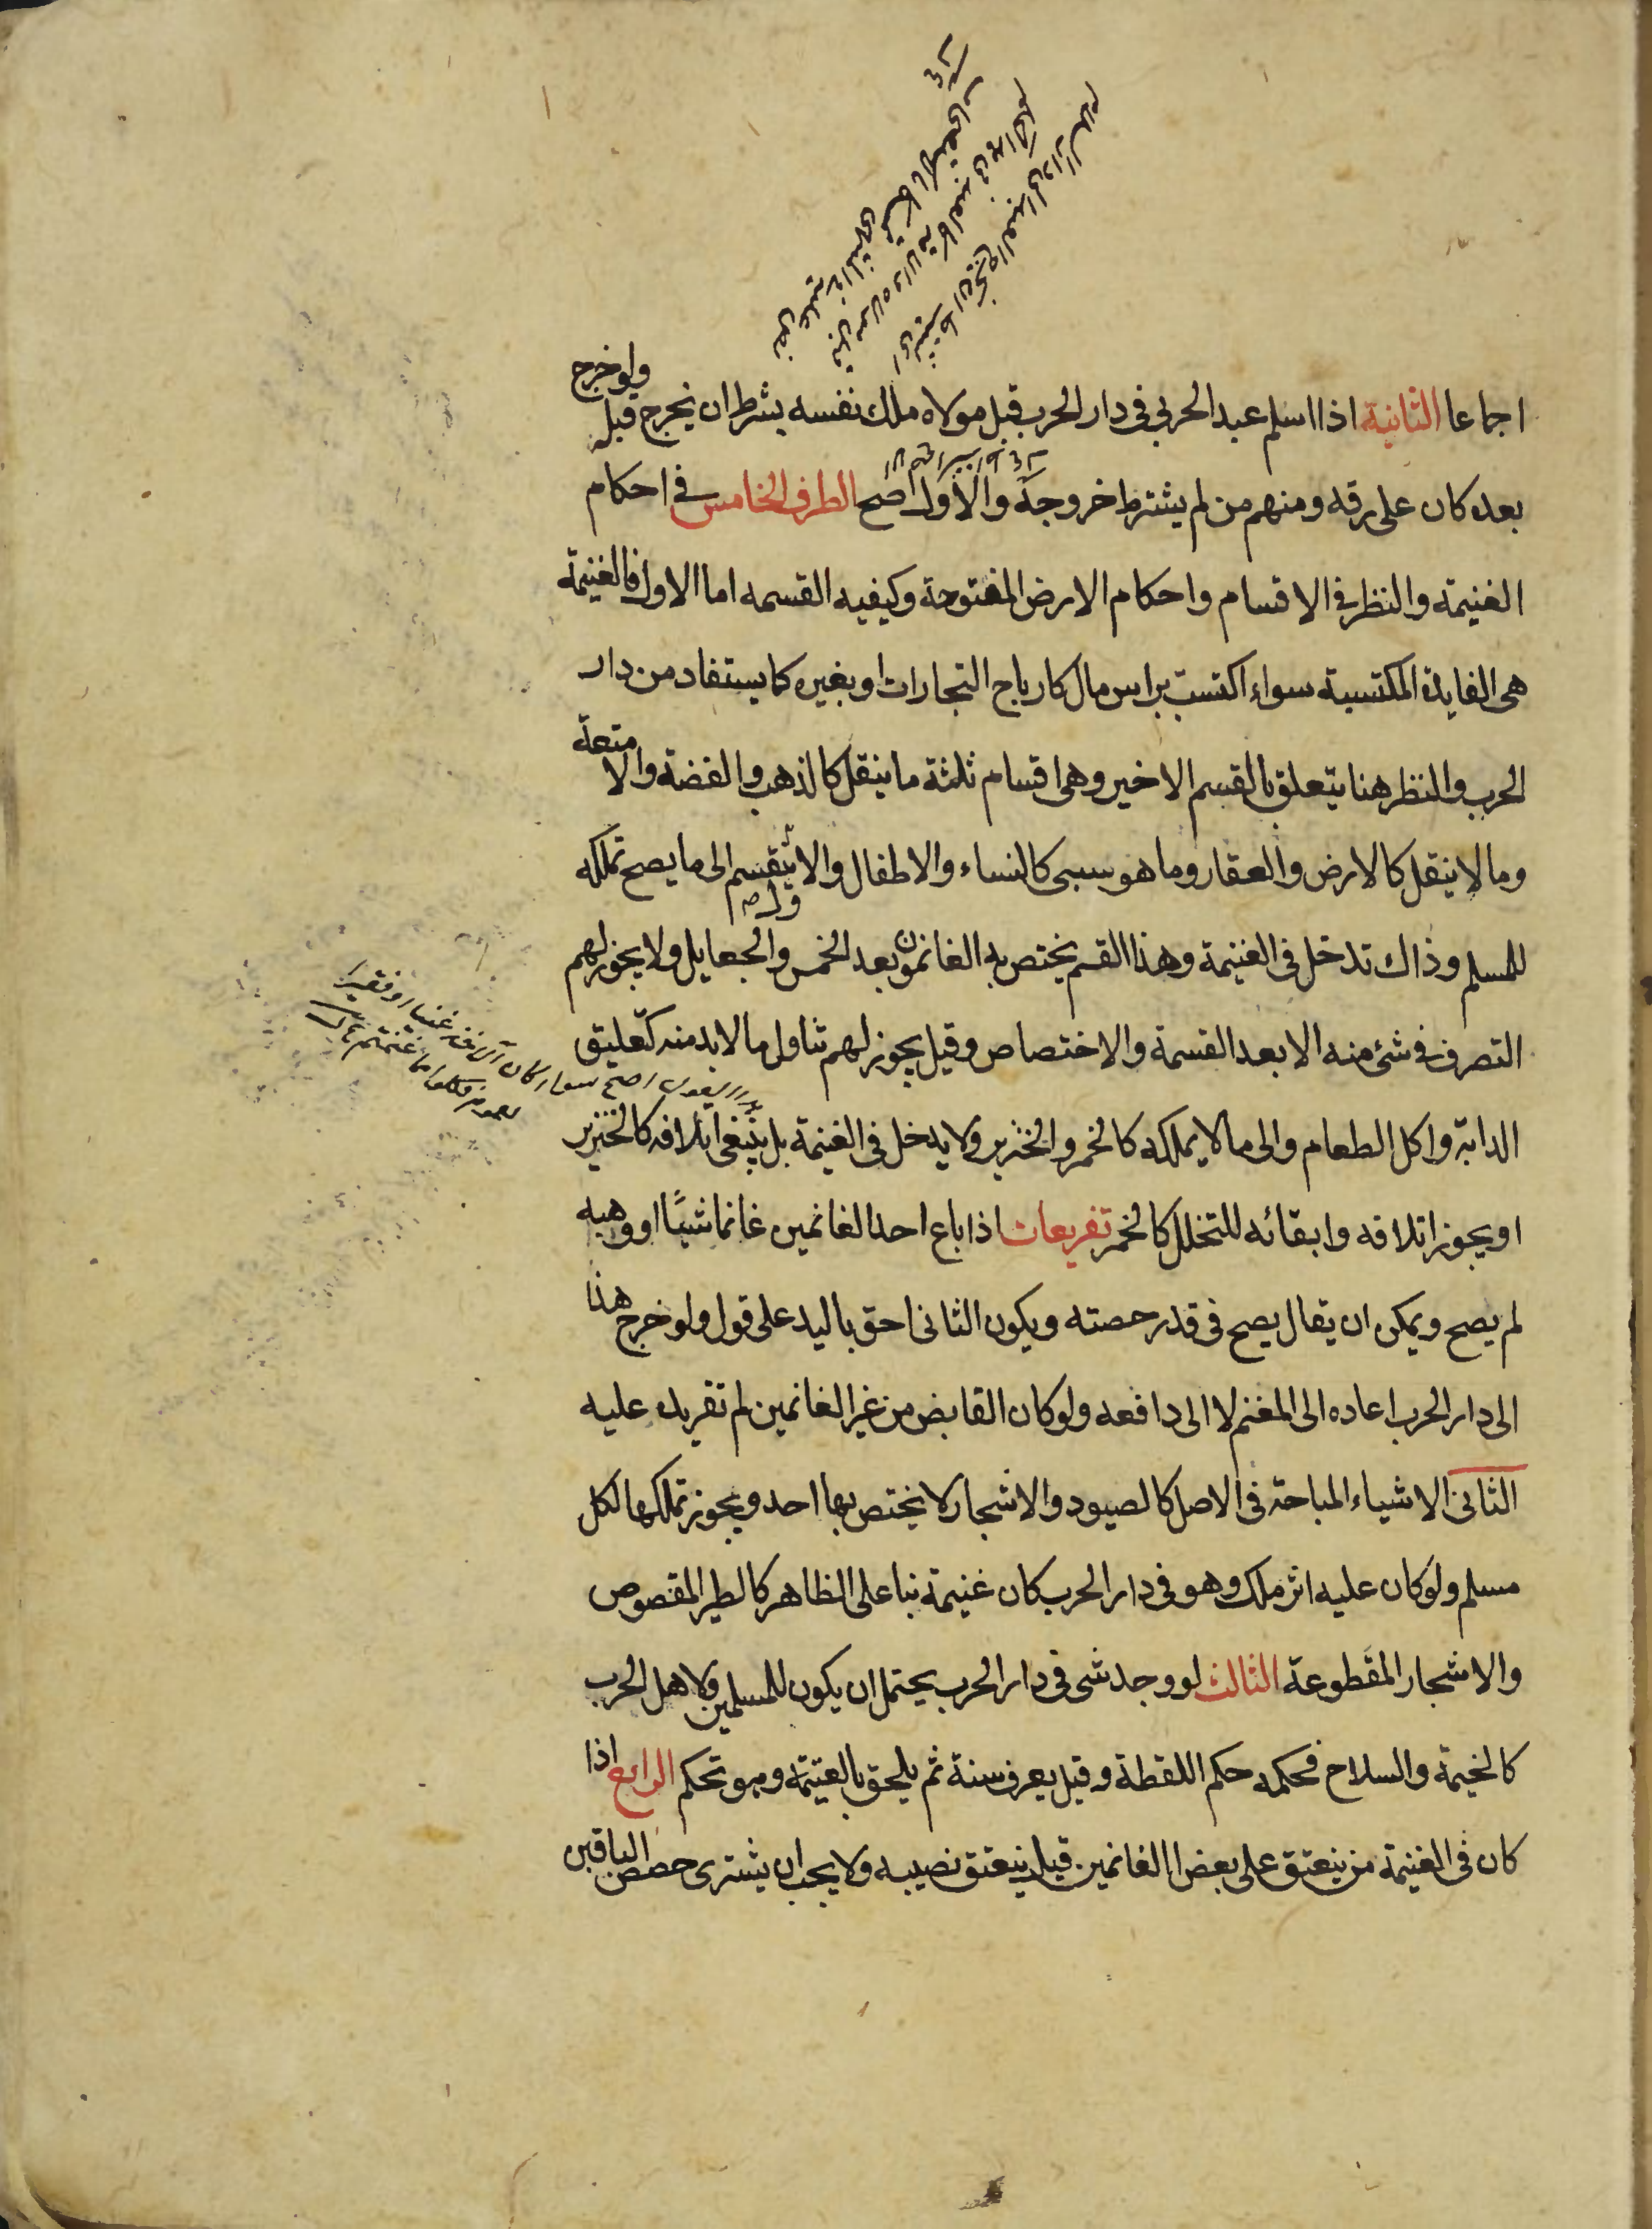 اجماعا الثانية اذا اسلم عبد الحربي في دار الحرب قبل مولاه ملك نفسه بشرط ان يخرج قبله ولو خرج
بعده كان على رقه ومنهم من لم يشترط خروجه والاول اصح الطرف الخامس في احكام
الغنيمة والنظر في الاقسام واحكام الارض المفتوحة وكيفيه القسمه اما الاول فالغنيمة
هى الفايدة المكتسبة سواء اكتسبت براس مال كارباح التجارات او بغيره كما يستفاد من دار
الحرب والنظر هنا يتعلق بالقسم الاخير وهى اقسام ثلثة ما ينقل كالذهب والفضة والامتعة
وما لا ينقل كالارض والعقار وما هو سبى كالنساء والاطفال والاول ينقسم الى ما يصح تملكه
للمسلم وذاك تدخل فى الغنيمة وهذا القسم يختص به الغانمون بعد الخمس والجعايل ولا يجوز لهم
التصرف في شئ منه الا بعد القسمة والاختصاص وقيل يجوز لهم تناول ما لا بد منه كتعليق
الدابة واكل الطعام والى ما لا يملكه كالخمر والخنزير ولا يدخل فى الغنيمة بل ينبغى اتلافه كالخنزير
او يجوز اتلافه وابقائه للتخلل كالخمر تفريعات اذا باع احد الغانمين غانما شيئا او وهبه
لم يصح ويمكن ان يقال يصح فى قدر حصته ويكون الثانى احق باليد على قول ولو خرج هذا
الى دار الحرب اعاده الى المغنم لا الى دافعه ولو كان القابض من غير الغانمين لم تقر يده عليه
الثانى الاشياء المباحة فى الاصل كالصيود والاشجار لا يختص بها احد ويجوز تملكها لكل
مسلم ولو كان عليه اثر ملك وهو فى دار الحرب كان غنيمة بنا على الظاهر كالطير المقصوص
والاشجار المقطوعة الثالث لو وجد شى فى دار الحرب يحتمل ان يكون للمسلمين ولاهل الحرب
كالخيمة والسلاح فحكمه حكم اللقطة وقيل يعرف سنة ثم يلحق بالغنيمة وهو تحكم الرابع اذا
كان فى الغنيمة من ينعتق على بعض الغانمين قيل ينعتق نصيبه ولا يجب ان يشترى حصص الباقين